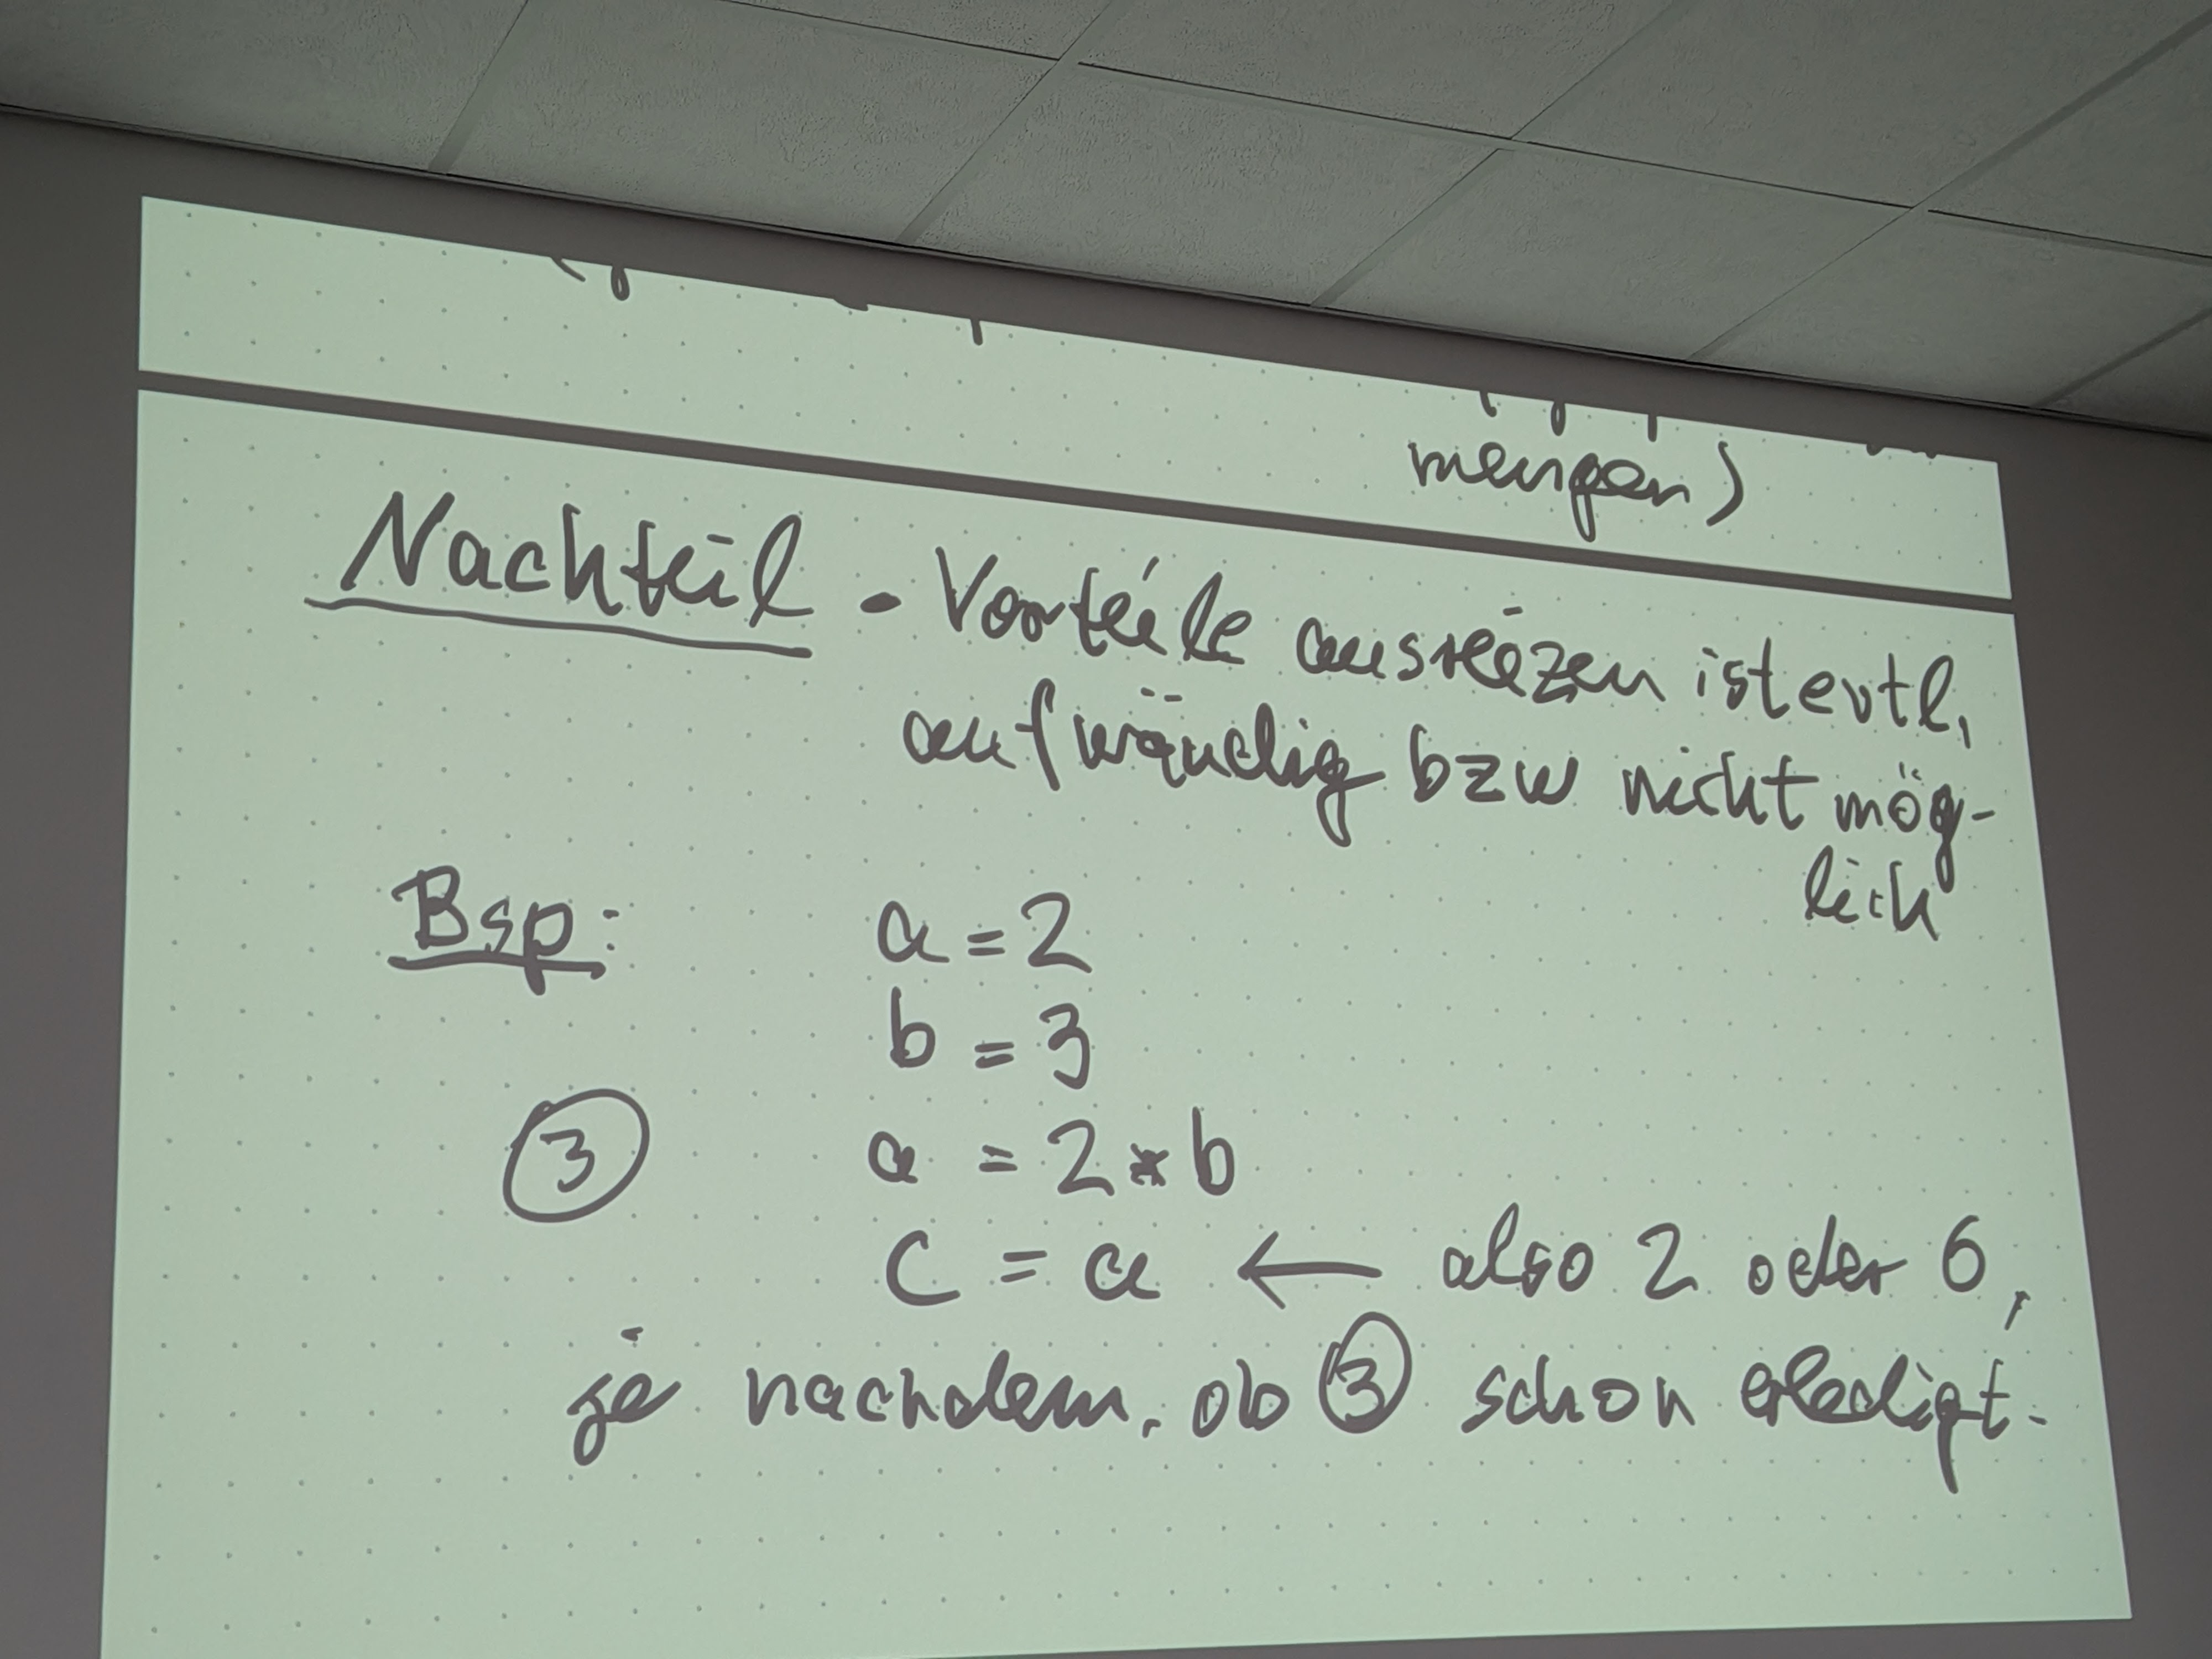 mengen)
Nachteil - Vorteile ausreizen ist evtl.
aufwändig bzw nicht mög-
lich
Bsp: a = 2
b = 3
③ a = 2 * b
c = a ← also 2 oder 6,
je nachdem, ob ③ schon erledigt.